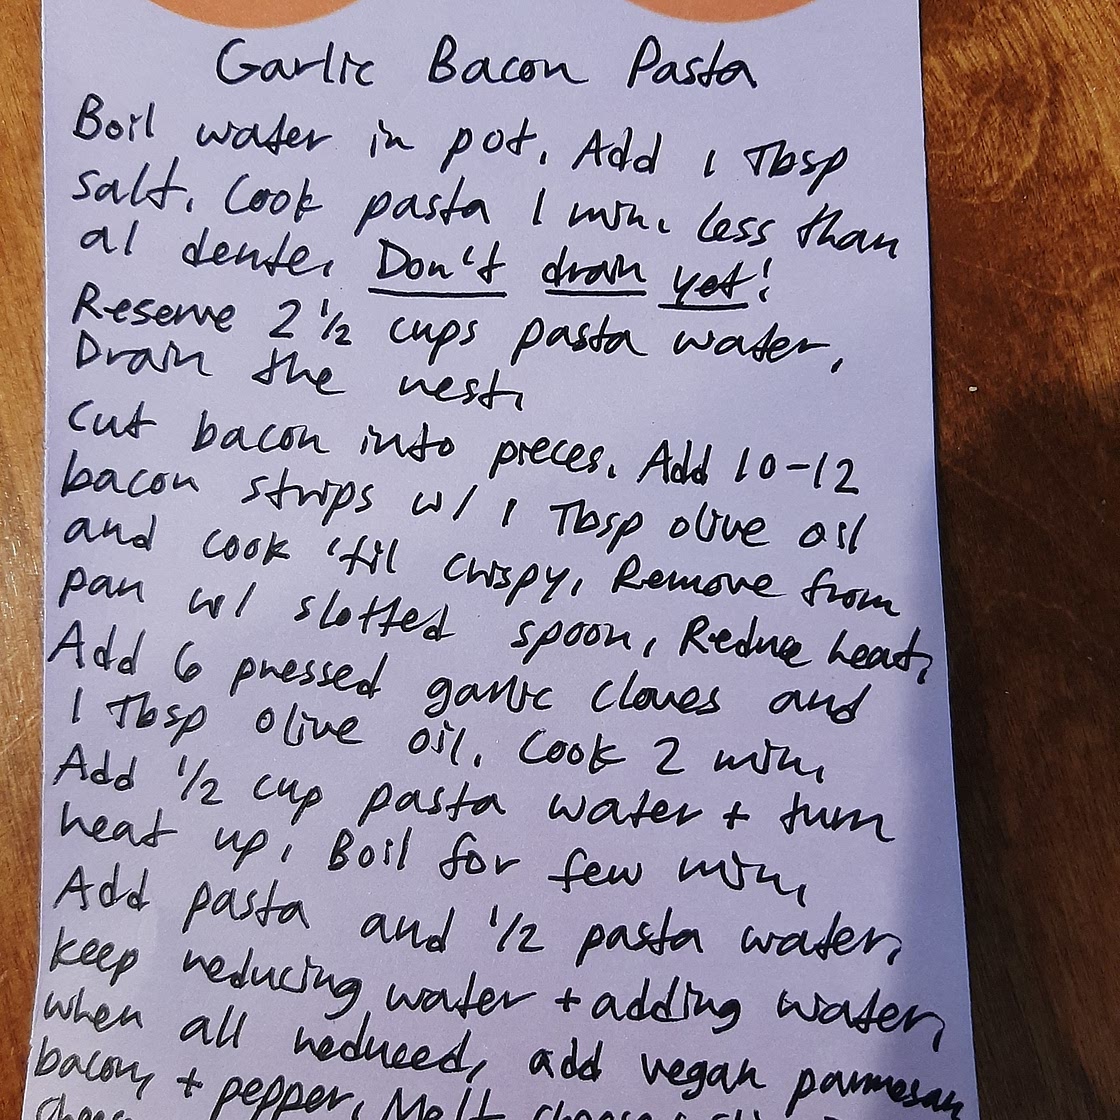 Garlic Bacon Pasta
Boil water in pot. Add 1 Tbsp
salt. Cook pasta 1 min. less than
al dente. Don't drain yet!
Reserve 2 1/2 cups pasta water.
Drain the rest.
Cut bacon into pieces. Add 10-12
bacon strips w/ 1 Tbsp olive oil
and cook 'til crispy. Remove from
pan w/ slotted spoon. Reduce heat.
Add 6 pressed garlic cloves and
1 Tbsp olive oil. Cook 2 min.
Add 1/2 cup pasta water + turn
heat up. Boil for few min.
Add pasta and 1/2 pasta water.
Keep reducing water + adding water.
When all reduced, add vegan parmesan
bacon, + pepper. Melt cheese